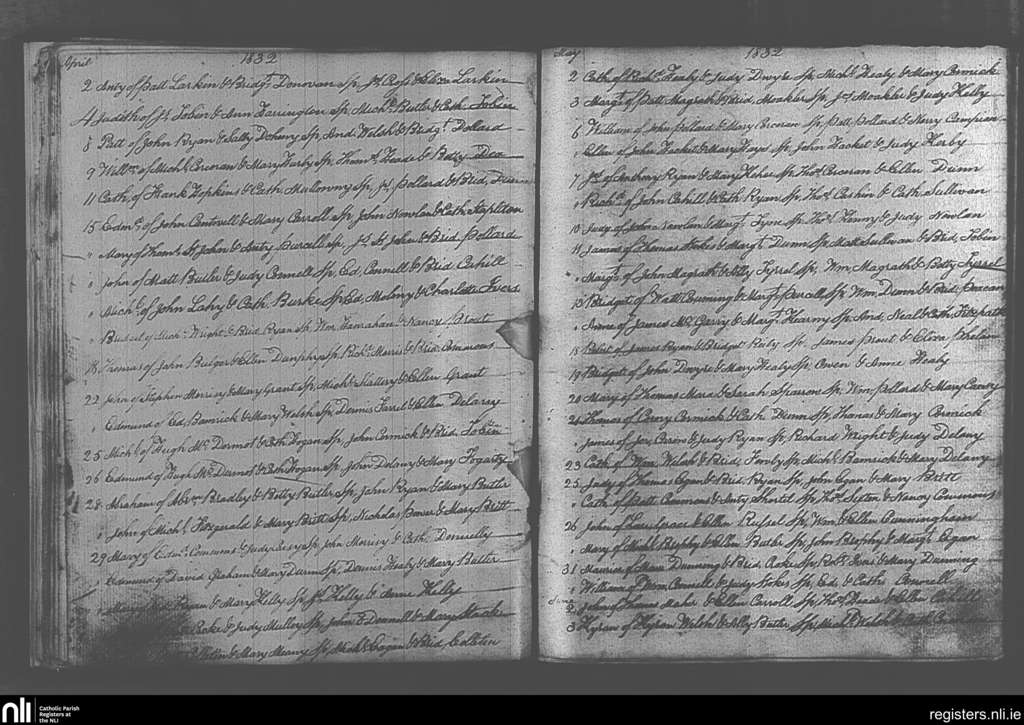 April 1832
2 Anty of Patt Larkin & Bridgt Donovan Sp, Js & Eliza Larkin
4 Judith of Js Tobin & Ann Farrington Sp, Michl Butler & Cath. Tobin
8 Patt of John Ryan & Sally Doheny Sp, And. Welsh & Bridgt Dollard
9 Willm of Michl Corcoran & Mary Sp, Thoms & Betty Dea
11 Cath. of Frank Hopkins & Cath Mullowny Sp, Js Pollard & Brid,
15 Edmd of John Cantwell & Mary Carroll Sp, John Nowlan & Cath. Stapleton
" Mary of St John & Anty Purcell Sp, Js St John & Brid Pollard
" John of Matt Butler & Judy Connell Sp, Ed, Connell & Brid Cahill
" Michl of John Lahy & Cath. Burke Sp, Ed, & Charlotte Ivers
" Bridget of Michl Wright & Brid Ryan Sp, Wm Hanrahan & Nancy Prout
18 Thomas of John Bulger & Ellen Dunphy Sp, Richd Morris & Brid,
22 John of Stephen Morrissy & Mary Grant Sp, Michl Slattery & Ellen Grant
" Edmund of Ed, Bamrick & Mary Welsh Sp, Dennis Farrel & Ellen Delany
25 Michl of Hugh Mc Dermot & Cath Hogan Sp, John Cormick & Brid, Tobin
26 Edmund of Hugh Mc Dermot & Cath Hogan Sp, John Delany & Mary Fogarty
28 Abraham of Abrm Bradley & Betty Butler Sp, John Ryan & Mary Butler
" John of Michl Fitzgerald & Mary Britt Sp, Nicholas Power & Mary Britt
29 Mary of Edmd Commons & Judy Sp, John Morrissy & Cath. Donnelly
" Edmund of David Graham & Mary Dunn Sp, Dennis Healy & Mary Butler
Ryan & Mary Kelly Sp, Js Kelly & Anne Kelly
& Judy Mulloy Sp, John O Donnell & Mary
& Mary Meany Sp, Michl Eagan & Brid,
May 1832
2 Cath of Richd Healy & Judy Dwyre Sp, Michl Healy & Mary Cormick
3 Margt of Patt Magrath & Brid, Moakler Sp, Js Moakler & Judy Kelly
6 William of John Pollard & Mary Corcoran Sp, Patt Pollard & Mary
" Ellen of John Hacket & Mary Hayes Sp, John Hacket & Judy
7 Js of Anthony Ryan & Mary Sp, Thos Corcoran & Ellen Dunn
" Richd of John Cahill & Cath Ryan Sp, Thos Larkin & Cath Sullivan
10 Judy of John Nowlan & Margt Sp, Thos Kenny & Judy Nowlan
11 James of Thomas Stokes & Margt Dunn Sp, Matt Sullivan & Brid, Tobin
" Margt of John Magrath & Tyrrel Sp, Wm, Magrath & Betty Tyrrel
13 Bridget of Watt Cumming & Margt Purcell Sp, Wm Dunn & Brid,
" Anne of James Mc Garry & Margt Kearny Sp, And, Neal & Cath. Fitzpatk
18 of James Ryan & Bridget Sp, James Prout & Eliza Phelan
19 Bridget of John Dwyre & Mary Healy Sp, Owen & Anne Healy
20 Mary of Thomas Mara & Sarah Sparrow Sp, Wm Pollard & Mary
21 Thomas of Cormick & Cath Dunn Sp, Thomas & Mary Cormick
" James of & Judy Ryan Sp, Richard Wright & Judy Delany
23 Cath of Wm, Welsh & Brid, Sp, Michl Bamrick & Mary Delany
25 Judy of Thomas Egan & Brid, Ryan Sp, John Egan & Mary Britt
" Cath of Patt Commons & Anty Shortil Sp, Thos & Nancy Commons
26 John of Grace & Ellen Sp, Wm & Ellen Cunningham
" Mary of Michl Brophy & Ellen Butler Sp, John Brophy & Margt Egan
31 Maurice of Mattw Dunning & Brid, Sp, & Mary Dunning
" William of Wm Connell & Judy Stokes Sp, Ed, & Cathe Connell
June 2 John of Thomas Maher & Ellen Carroll Sp, Thos & Ellen
3 Kyran of Kyran Welsh & Butler Sp, Michl Welsh & Cath
nli Catholic Parish Registers at the NLI
registers.nli.ie